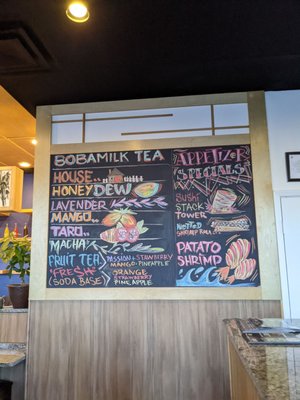 BOBAMILK TEA
HOUSE..
HONEYDEW
LAVENDER
MANGO..
TARO..
MACHA
FRUIT TEA
"FRESH"
(SODA BASE)
PASSION + STAWBERRY
MANGO + PINEAPPLE
ORANGE
STRAWBERRY
PINEAPPLE
APPETIZER
SPECIALS
SUSHI
STACK
TOWER
SHRIMP ROLL
PATATO
SHRIMP